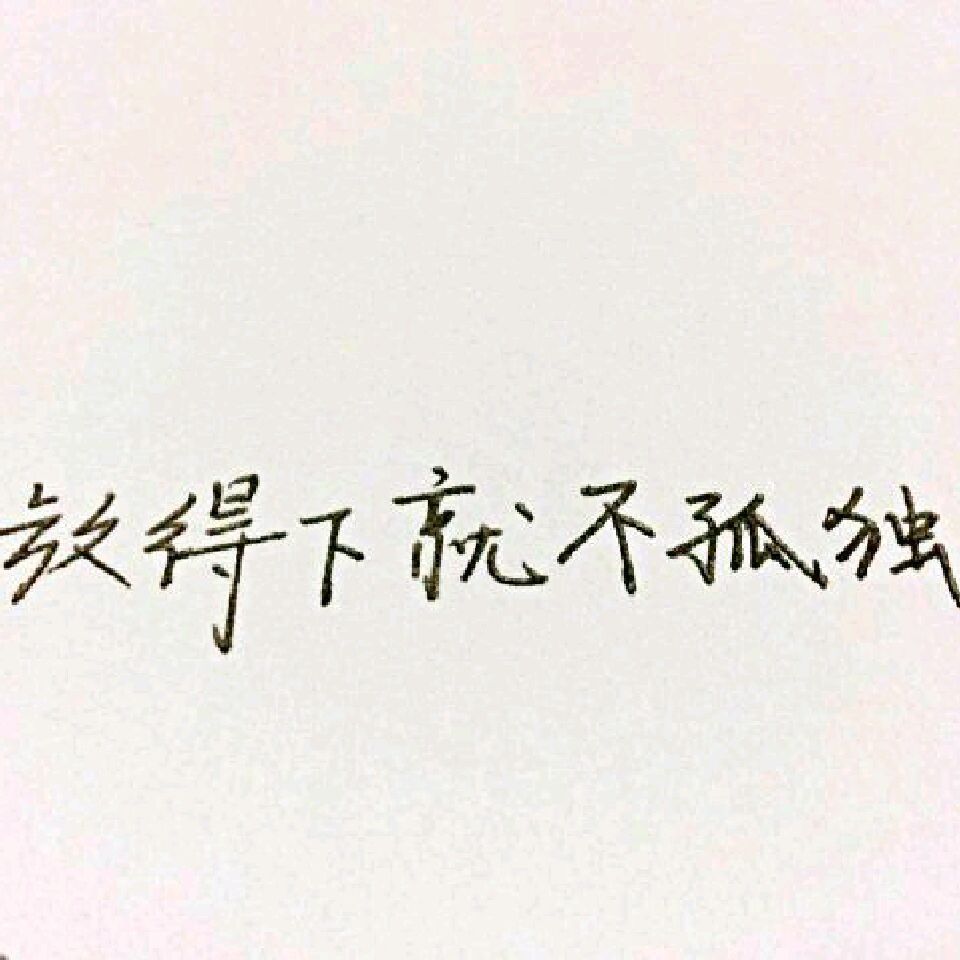 放得下就不孤独